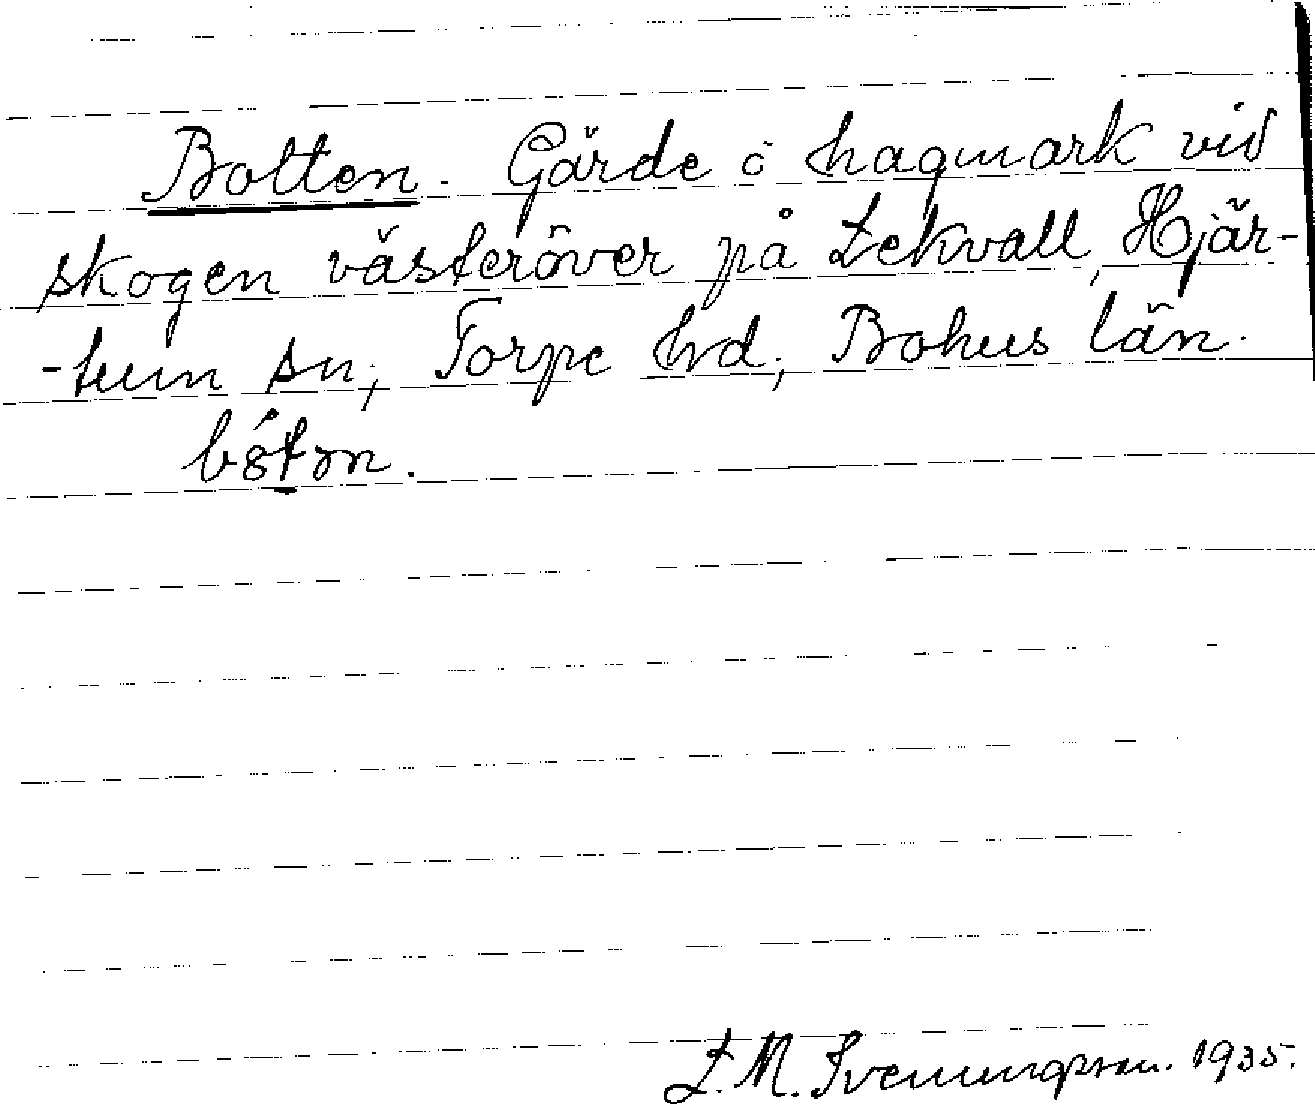 Botten. Gärde o hagmark vid
skogen västeröver på Lekvall, Hjär-
-tum sn; Torpe hd; Bohus län.
Z. M. Svenungsson. 1935.